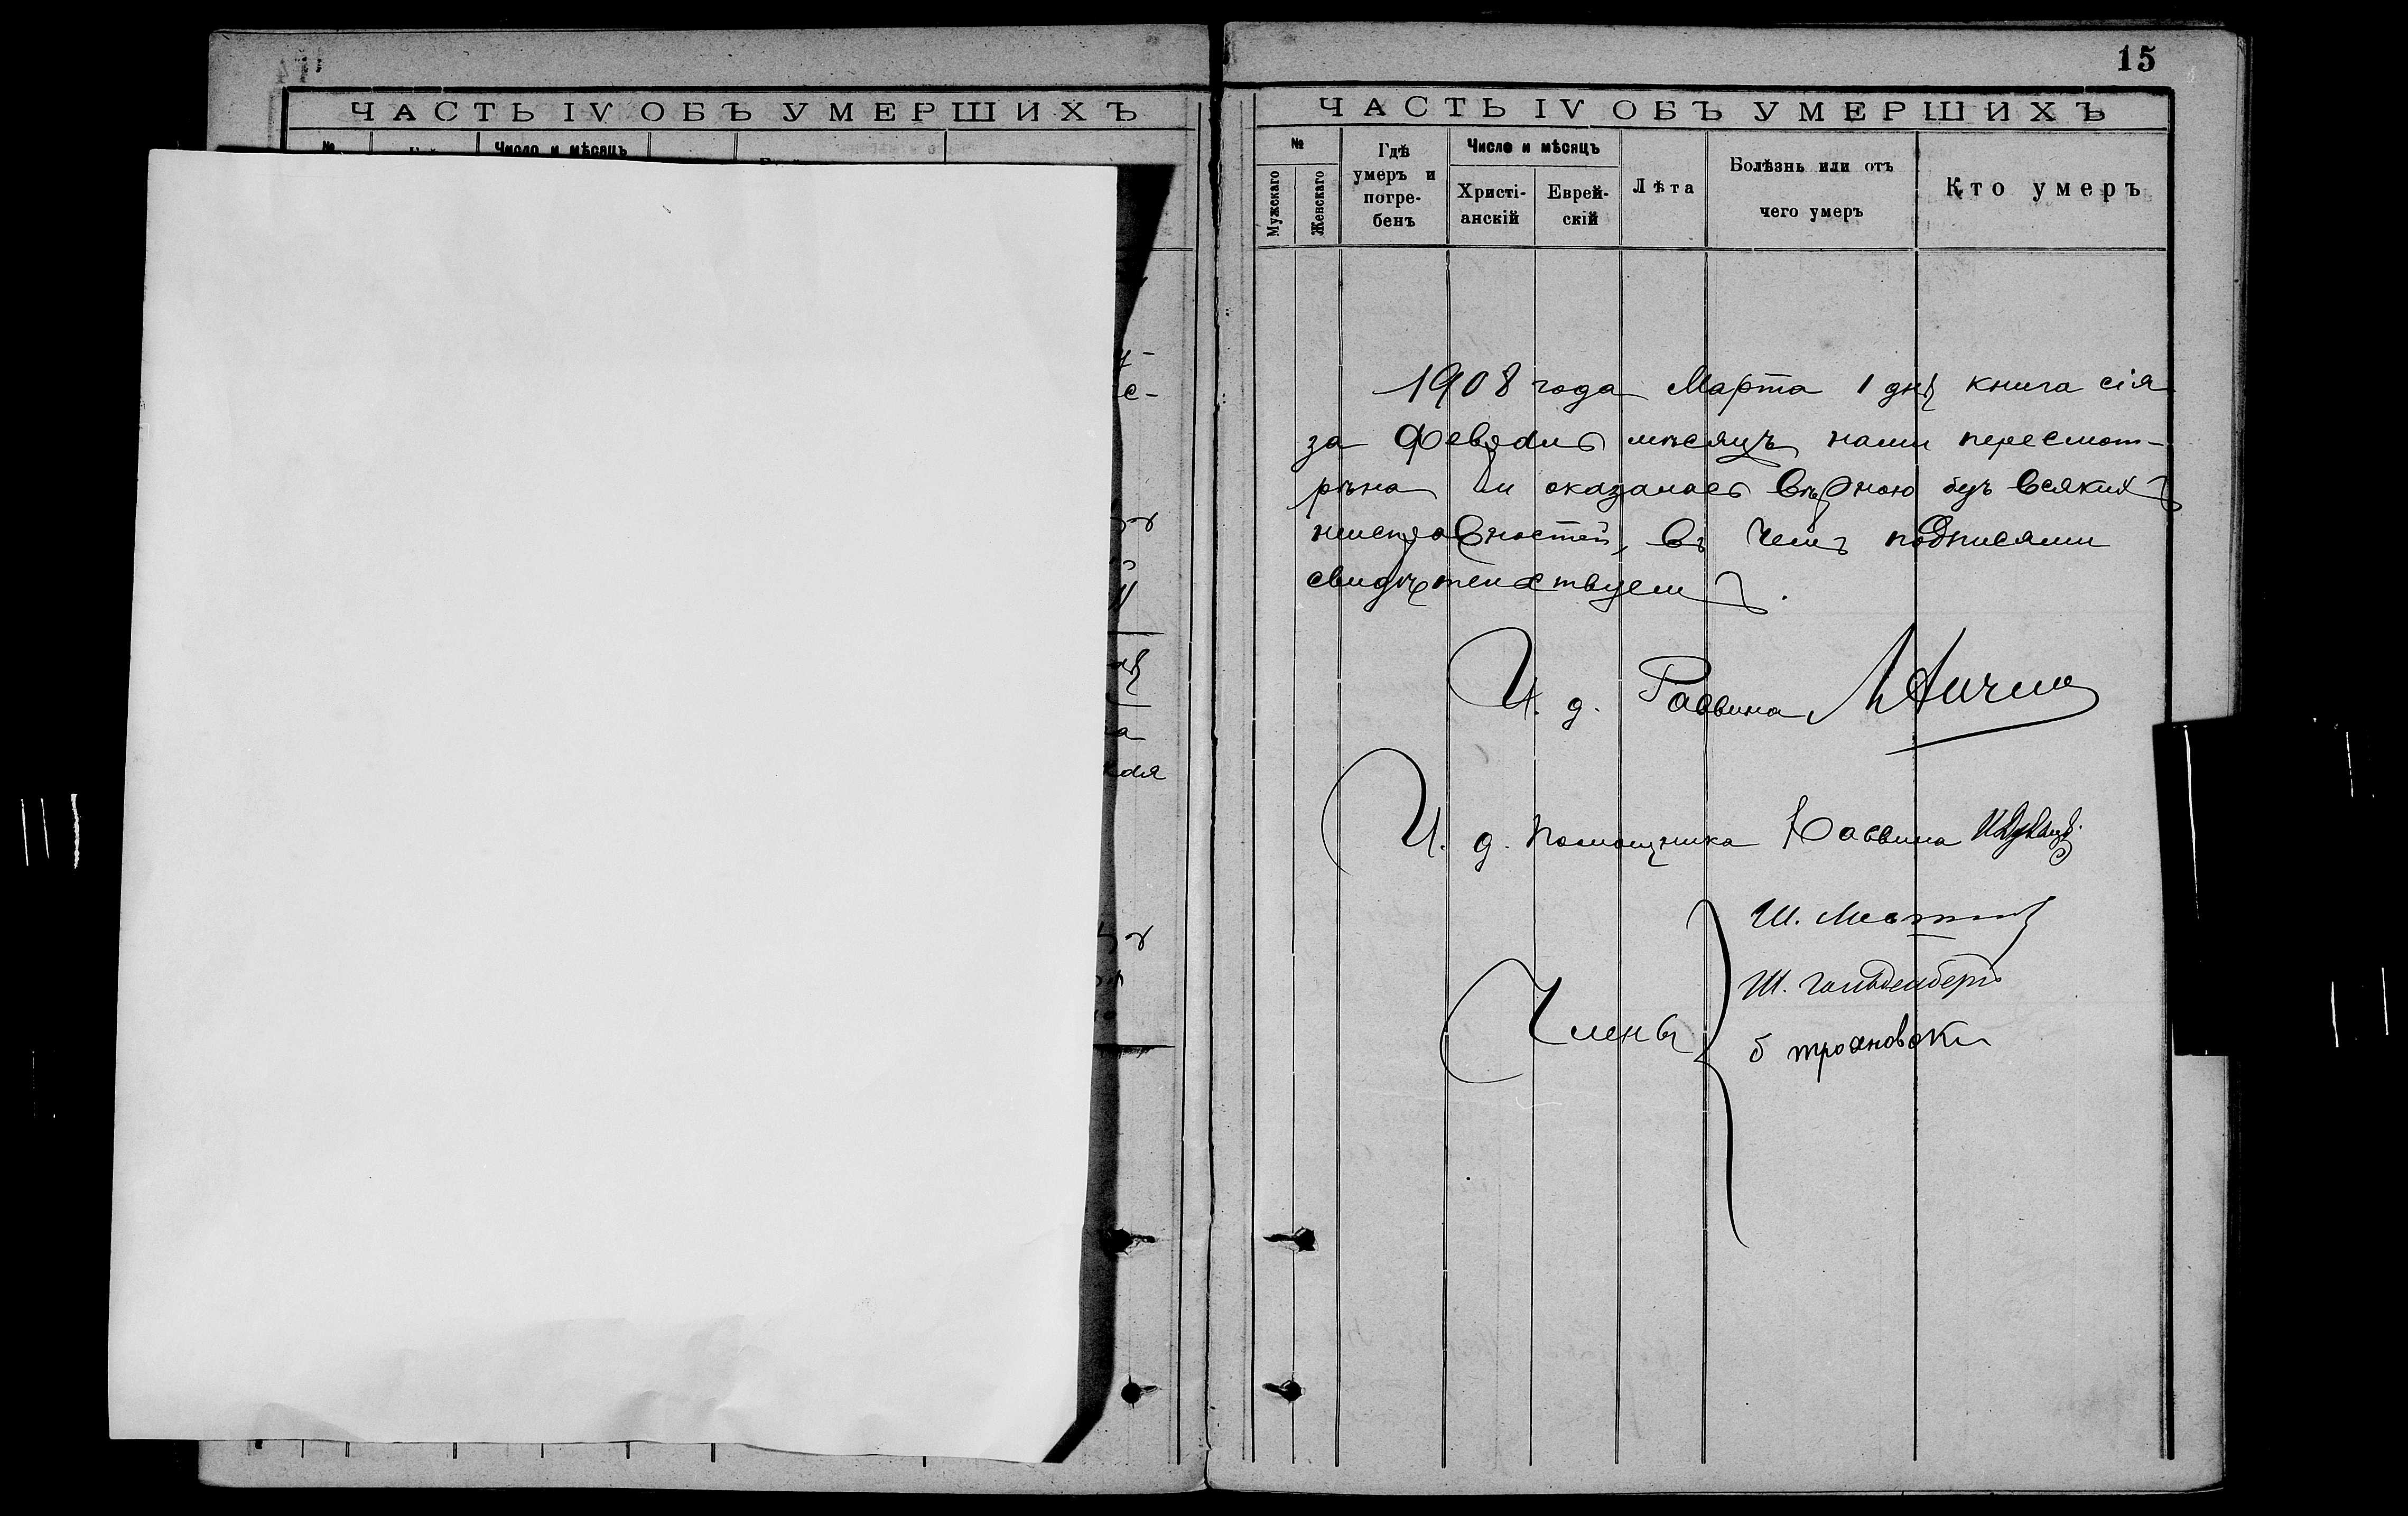 ЧАСТЬ IV ОБЪ УМЕРШИХЪ
№
Число и мѣсяцъ
15
ЧАСТЬ IV ОБЪ УМЕРШИХЪ
№
Мужскаго
Женскаго
Гдѣ
умеръ и
погре-
бенъ
Число и мѣсяцъ
Христі-
анскій
Еврей-
скій
Лѣта
Болѣзнь или отъ
чего умеръ
Кто умеръ
1908 года Марта 1 дня книга сія
за Февраль мѣсяцъ нами пересмот-
рѣна и оказалась вѣрною безъ всякихъ
неисправностей, въ чемъ подписями
свидѣтельствуемъ.
И. д. Раввина
И. д. Помощника Раввина
Члены
Ш.
Ш. Гольденбергъ
Б Трояновски